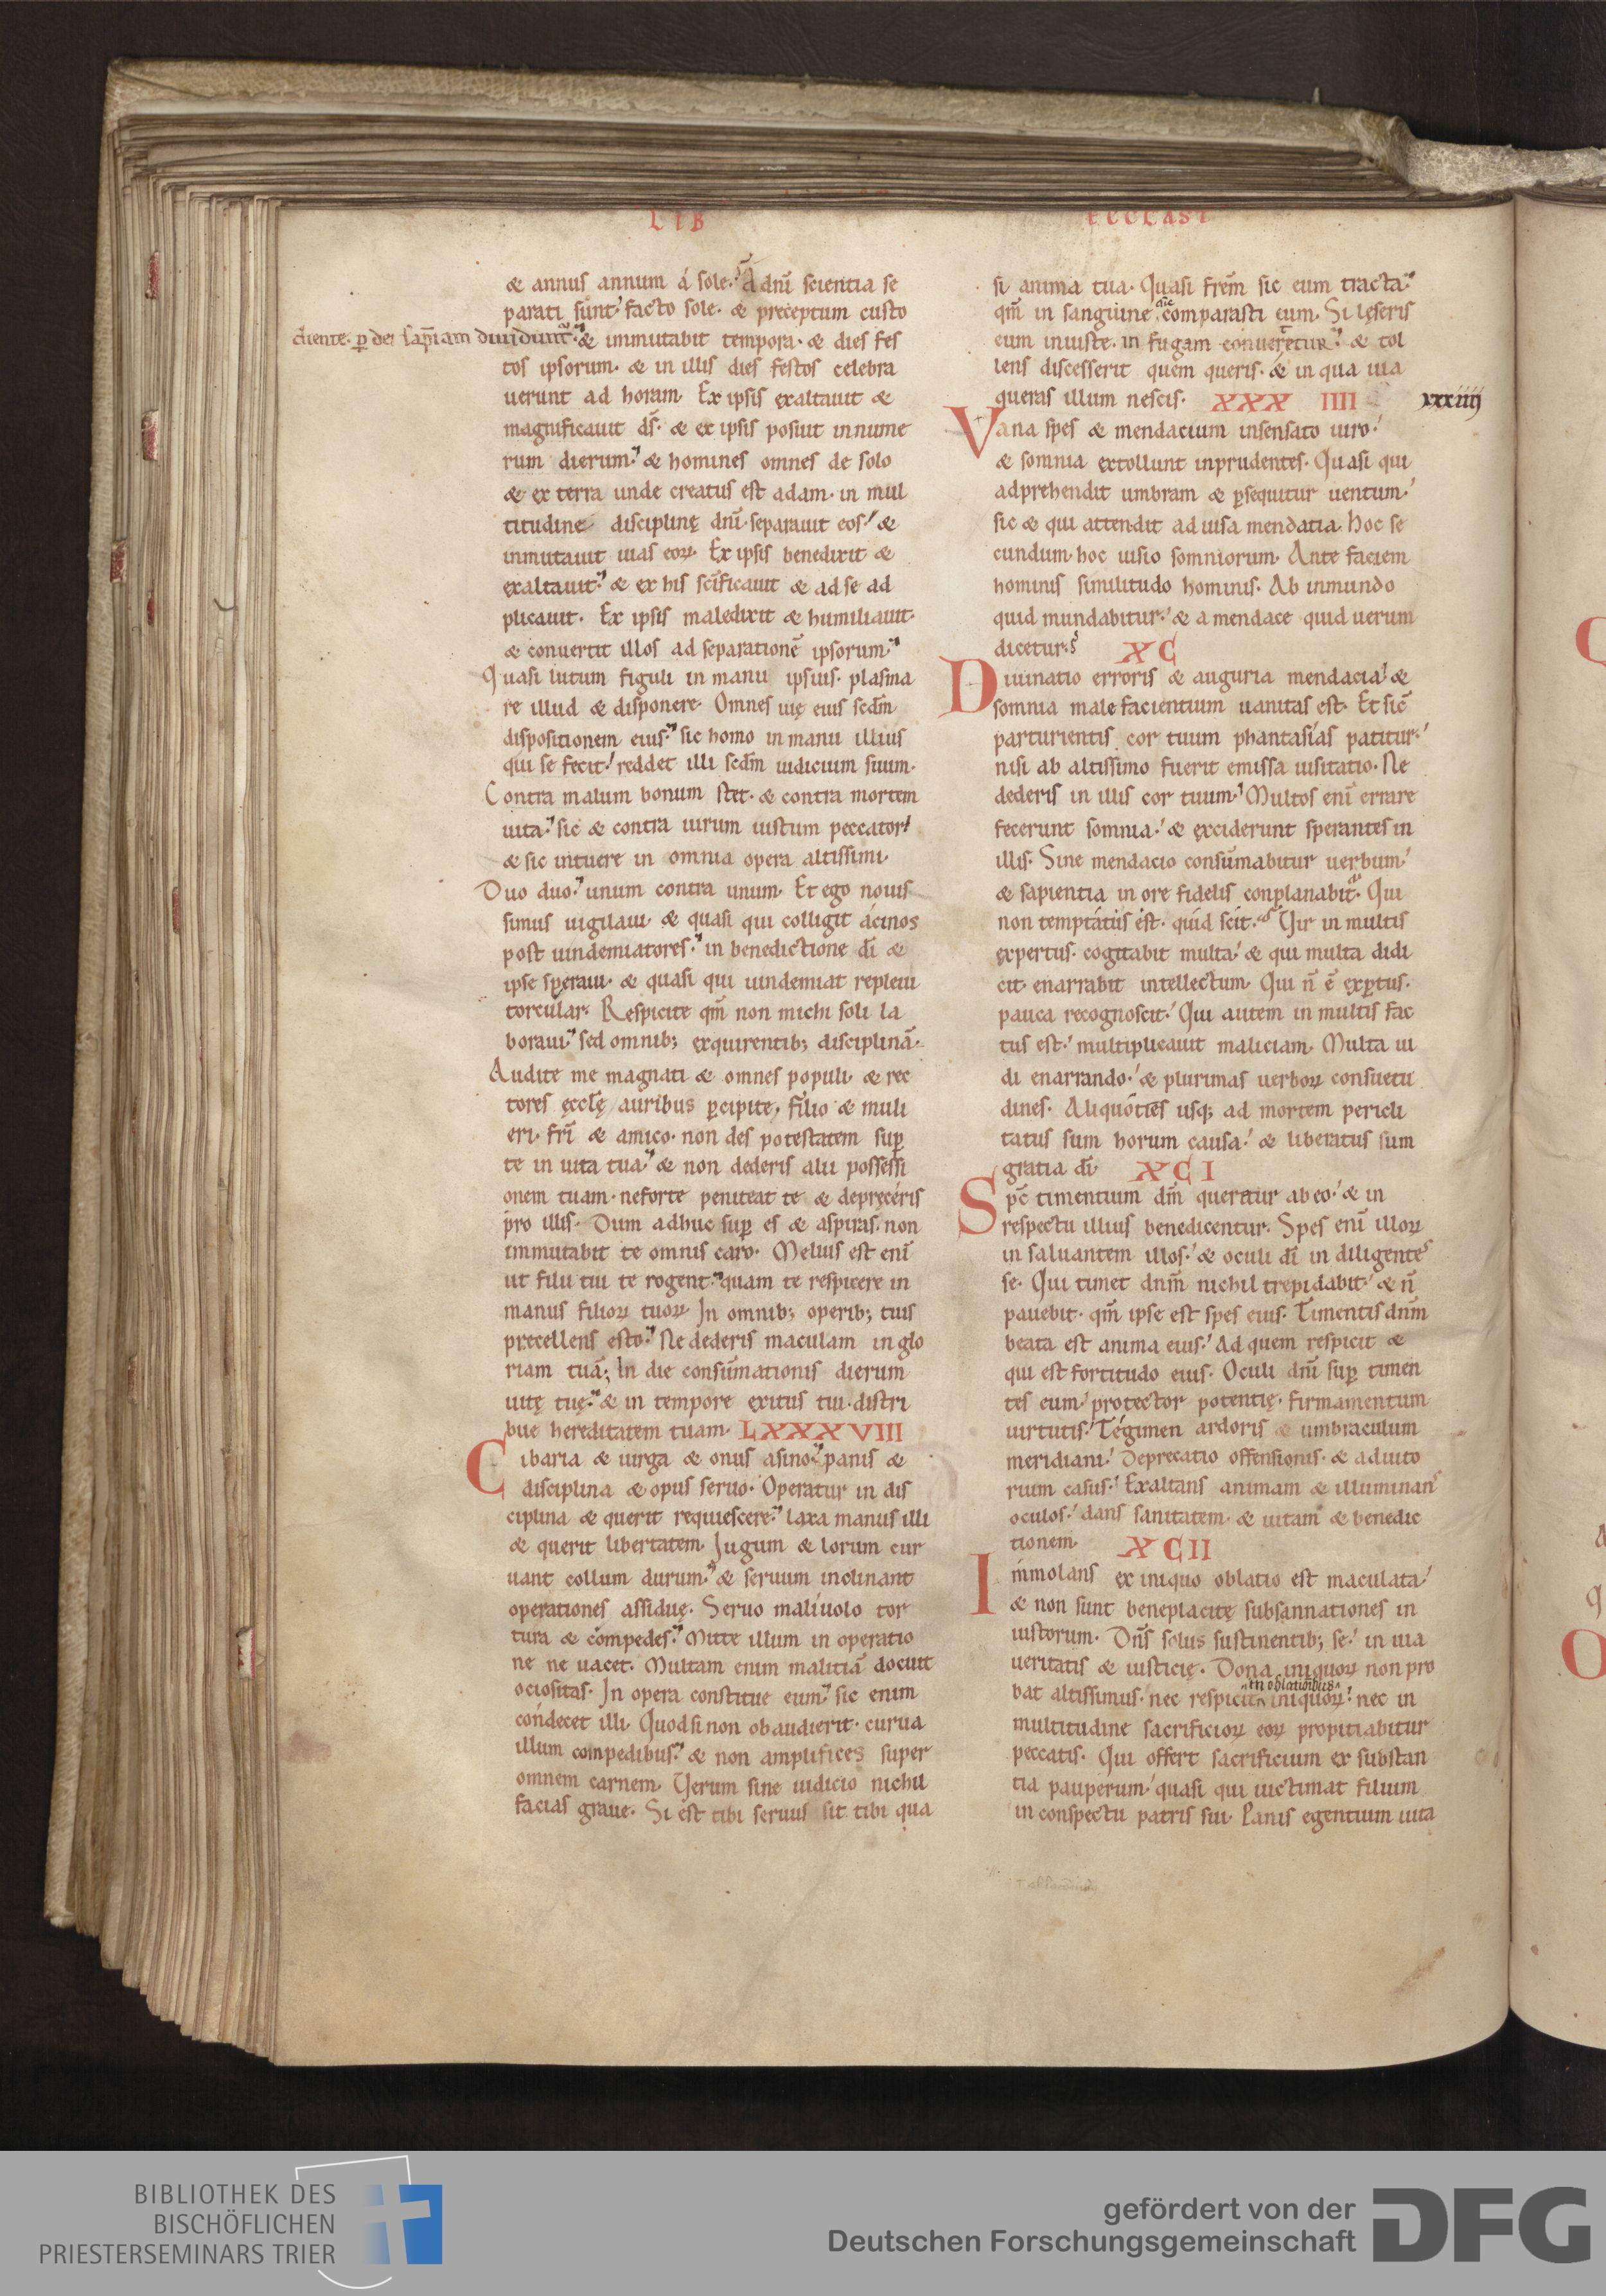 LIB
ECCLASI
& annus annum á sole. A dn̄i scientia se
parati sunt facto sole. & preceptum custo
diente. ꝑ dei sapīam diuidunt̄
& immutabit tempora. & dies fes
tos ipsorum. & in illis dies festos celebra
uerunt ad horam. Ex ipsis exaltauit &
magnificauit ds̄. & ex ipsis posuit in nume
rum dierum. & homines omnes de solo
& ex terra unde creatus est adam. in mul
titudine disciplinę dn̄i separauit eos. &
inmutauit uias eoꝝ. Ex ipsis benedixit &
exaltauit. & ex his sc̄ificauit & ad se ad
plicauit. Ex ipsis maledixit & humiliauit.
& conuertit illos ad separationē ipsorum.
Quasi lutum figuli in manu ipsius. plasma
re illud & disponere. Omnes uię eius scdm̄
dispositionem eius. sic homo in manu illius
qui se fecit. reddet illi scdm̄ iudicium suum.
Contra malum bonum stet. & contra mortem
uita. sic & contra uirum iustum peccator
& sic intuere in omnia opera altissimi.
Duo duo. unum contra unum. Et ego nouis
simus uigilaui. & quasi qui colligit ácinos
post uindemiatores. in benedictione dī &
ipse speraui. & quasi qui uindemiat repleui
torcular. Respicite qm̄ non michi soli la
boraui. sed omnib; exquirentib; disciplinā.
Audite me magnati & omnes populi. & rec
tores ęccłę auribus ꝑcipite. filio & muli
eri. fr̄i & amico. non des potestatem suꝑ
te in uita tua. & non dederis alii possessi
onem tuam. ne forte peniteat te & depręcéris
pro illis. Dum adhuc suꝑ es & aspiras. non
immutabit te omnis caro. Melius est enī
ut filii tui te rogent. quam te respicere in
manus filioꝝ tuoꝝ. In omnib; operib; tuis
precellens esto. Ne dederis maculam in glo
riam tuā. In die consūmationis dierum
uitę tuę. & in tempore exitus tui. distri
bue hereditatem tuam. LXXXVIII
Cibaria & uirga & onus asino. panis &
disciplina & opus seruo. Operatur in dis
ciplina & querit requiescere. laxa manus illi
& querit libertatem. Jugum & lorum cur
uant collum durum. & seruum inclinant
operationes assiduę. Seruo maliuolo tor
tura & compedes. Mitte illum in operatio
ne ne uacet. Multam enim malitiā docuit
ociositas. In opera constitue eum. sic enim
condecet illi. Quod si non obaudierit. curua
illum compedibus. & non amplifices super
omnem carnem. Verum sine iudicio nichil
facias graue. Si est tibi seruus sit tibi qua
si anima tua. Quasi frēm sic eum tracta.
qm̄ in sanguine comparasti eum. Si lęseris
eum iniuste. in fugam conueretur. & tol
lens discesserit quem queris. & in qua uia
queras illum nescis. XXX IIII
xxxiiij
Vana spes & mendacium insensato uiro.
& somnia extollunt inprudentes. Quasi qui
adprehendit umbram & ꝑsequitur uentum.
sic & qui attendit ad uisa mendatia. Hoc se
cundum hoc uisio somniorum. Ante faciem
hominis similitudo hominis. Ab inmundo
quid mundabitur. & a mendace quid uerum
dicetur. XC
Diuinatio erroris & auguria mendacia. &
somnia male facientium uanitas est. Et sic̄
parturientis cor tuum phantasías patitur.
nisi ab altissimo fuerit emissa uisitatio. Ne
dederis in illis cor tuum. Multos enī errare
fecerunt somnia. & exciderunt sperantes in
illis. Sine mendacio consūmabitur uerbum.
& sapientia in ore fidelis conplanabit̄. Qui
non temptátus est. quid scit. Vir in multis
expertus. cogitabit multa. & qui multa didi
cit. enarrabit intellectum. Qui n̄ ē exꝑtus.
pauca recognoscit. Qui autem in multis fac
tus est. multiplicauit maliciam. Multa ui
di enarrando. & plurimas uerboꝝ consuetu
dines. Aliquóties usq; ad mortem pericli
tatus sum horum causa. & liberatus sum
gratia dī. XCI
Spc̄ timentium dm̄ queratur ab eo. & in
respectu illius benedicentur. Spes enī illoꝝ
in saluantem illos. & oculi dī in diligentes
se. Qui timet dnm̄ nichil trepidabit. & n̄
pauebit. qm̄ ipse est spes eius. Timentis dnm̄
beata est anima eius. Ad quem respicit &
qui est fortitudo eius. Oculi dn̄i suꝑ timen
tes eum. protector potentię. firmamentum
uirtutis. Tégimen ardoris & umbraculum
meridiani. Deprecatio offensionis. & adiuto
rium casus. Exaltans animam & illuminans
oculos. dans sanitatem. & uitam & benedic
tionem. XCII
Immolans ex iniquo oblatio est maculata.
& non sunt beneplacitę subsannationes in
iustorum. Dn̄s solus sustinentib; se. in uia
ueritatis & iusticię. Dona iniquoꝝ non pro
in oblationibus
bat altissimus. nec respicit iniquoꝝ. nec in
multitudine sacrificioꝝ eoꝝ propitiabitur
peccatis. Qui offert sacrificium ex substan
tia pauperum. quasi qui uictimat filium
in conspectu patris sui. Panis egentium uita
BIBLIOTHEK DES
BISCHÖFLICHEN
PRIESTERSEMINARS TRIER
gefördert von der
Deutschen Forschungsgemeinschaft
DFG